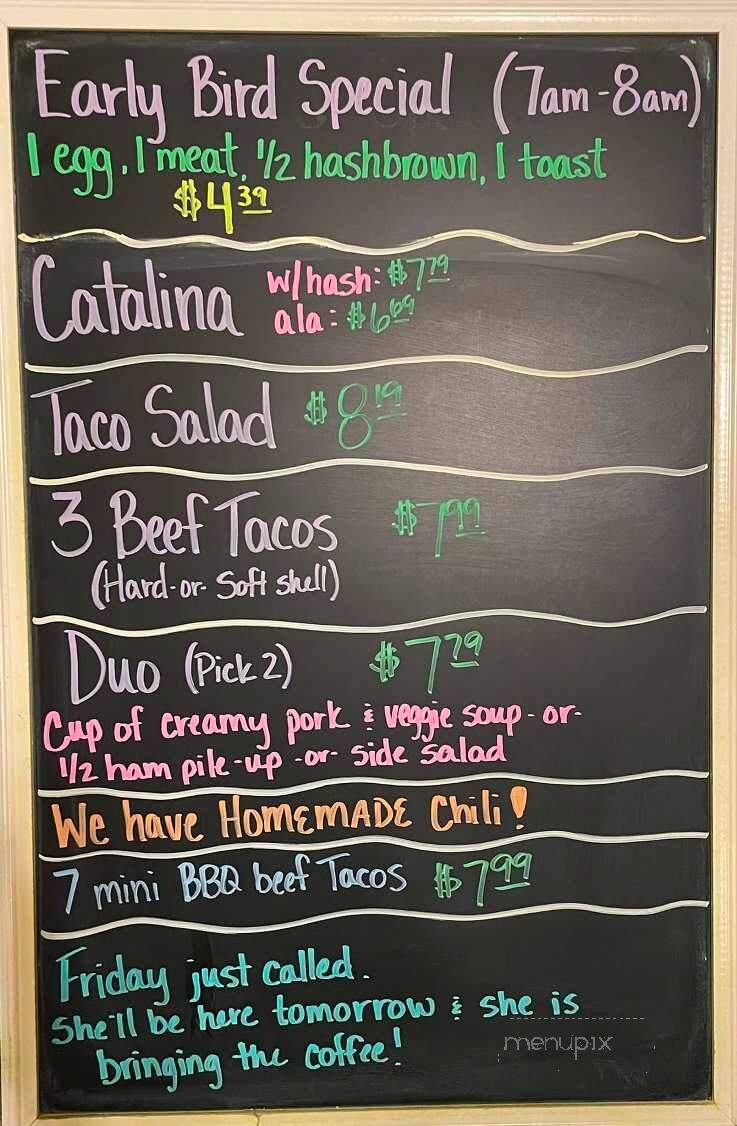 Early Bird Special (7am-8am)
1 egg, 1 meat, 1/2 hashbrown, 1 toast
$4.39
Catalina w/hash: $7.79
ala: $6.69
Taco Salad $8.19
3 Beef Tacos $7.99
(Hard-or-Soft shell)
Duo (Pick 2) $7.79
Cup of creamy pork & veggie soup-or-
1/2 ham pile-up -or- side salad
We have HOMEMADE Chili!
7 mini BBQ beef Tacos $7.99
Friday just called.
She'll be here tomorrow & she is
bringing the coffee!
menupix